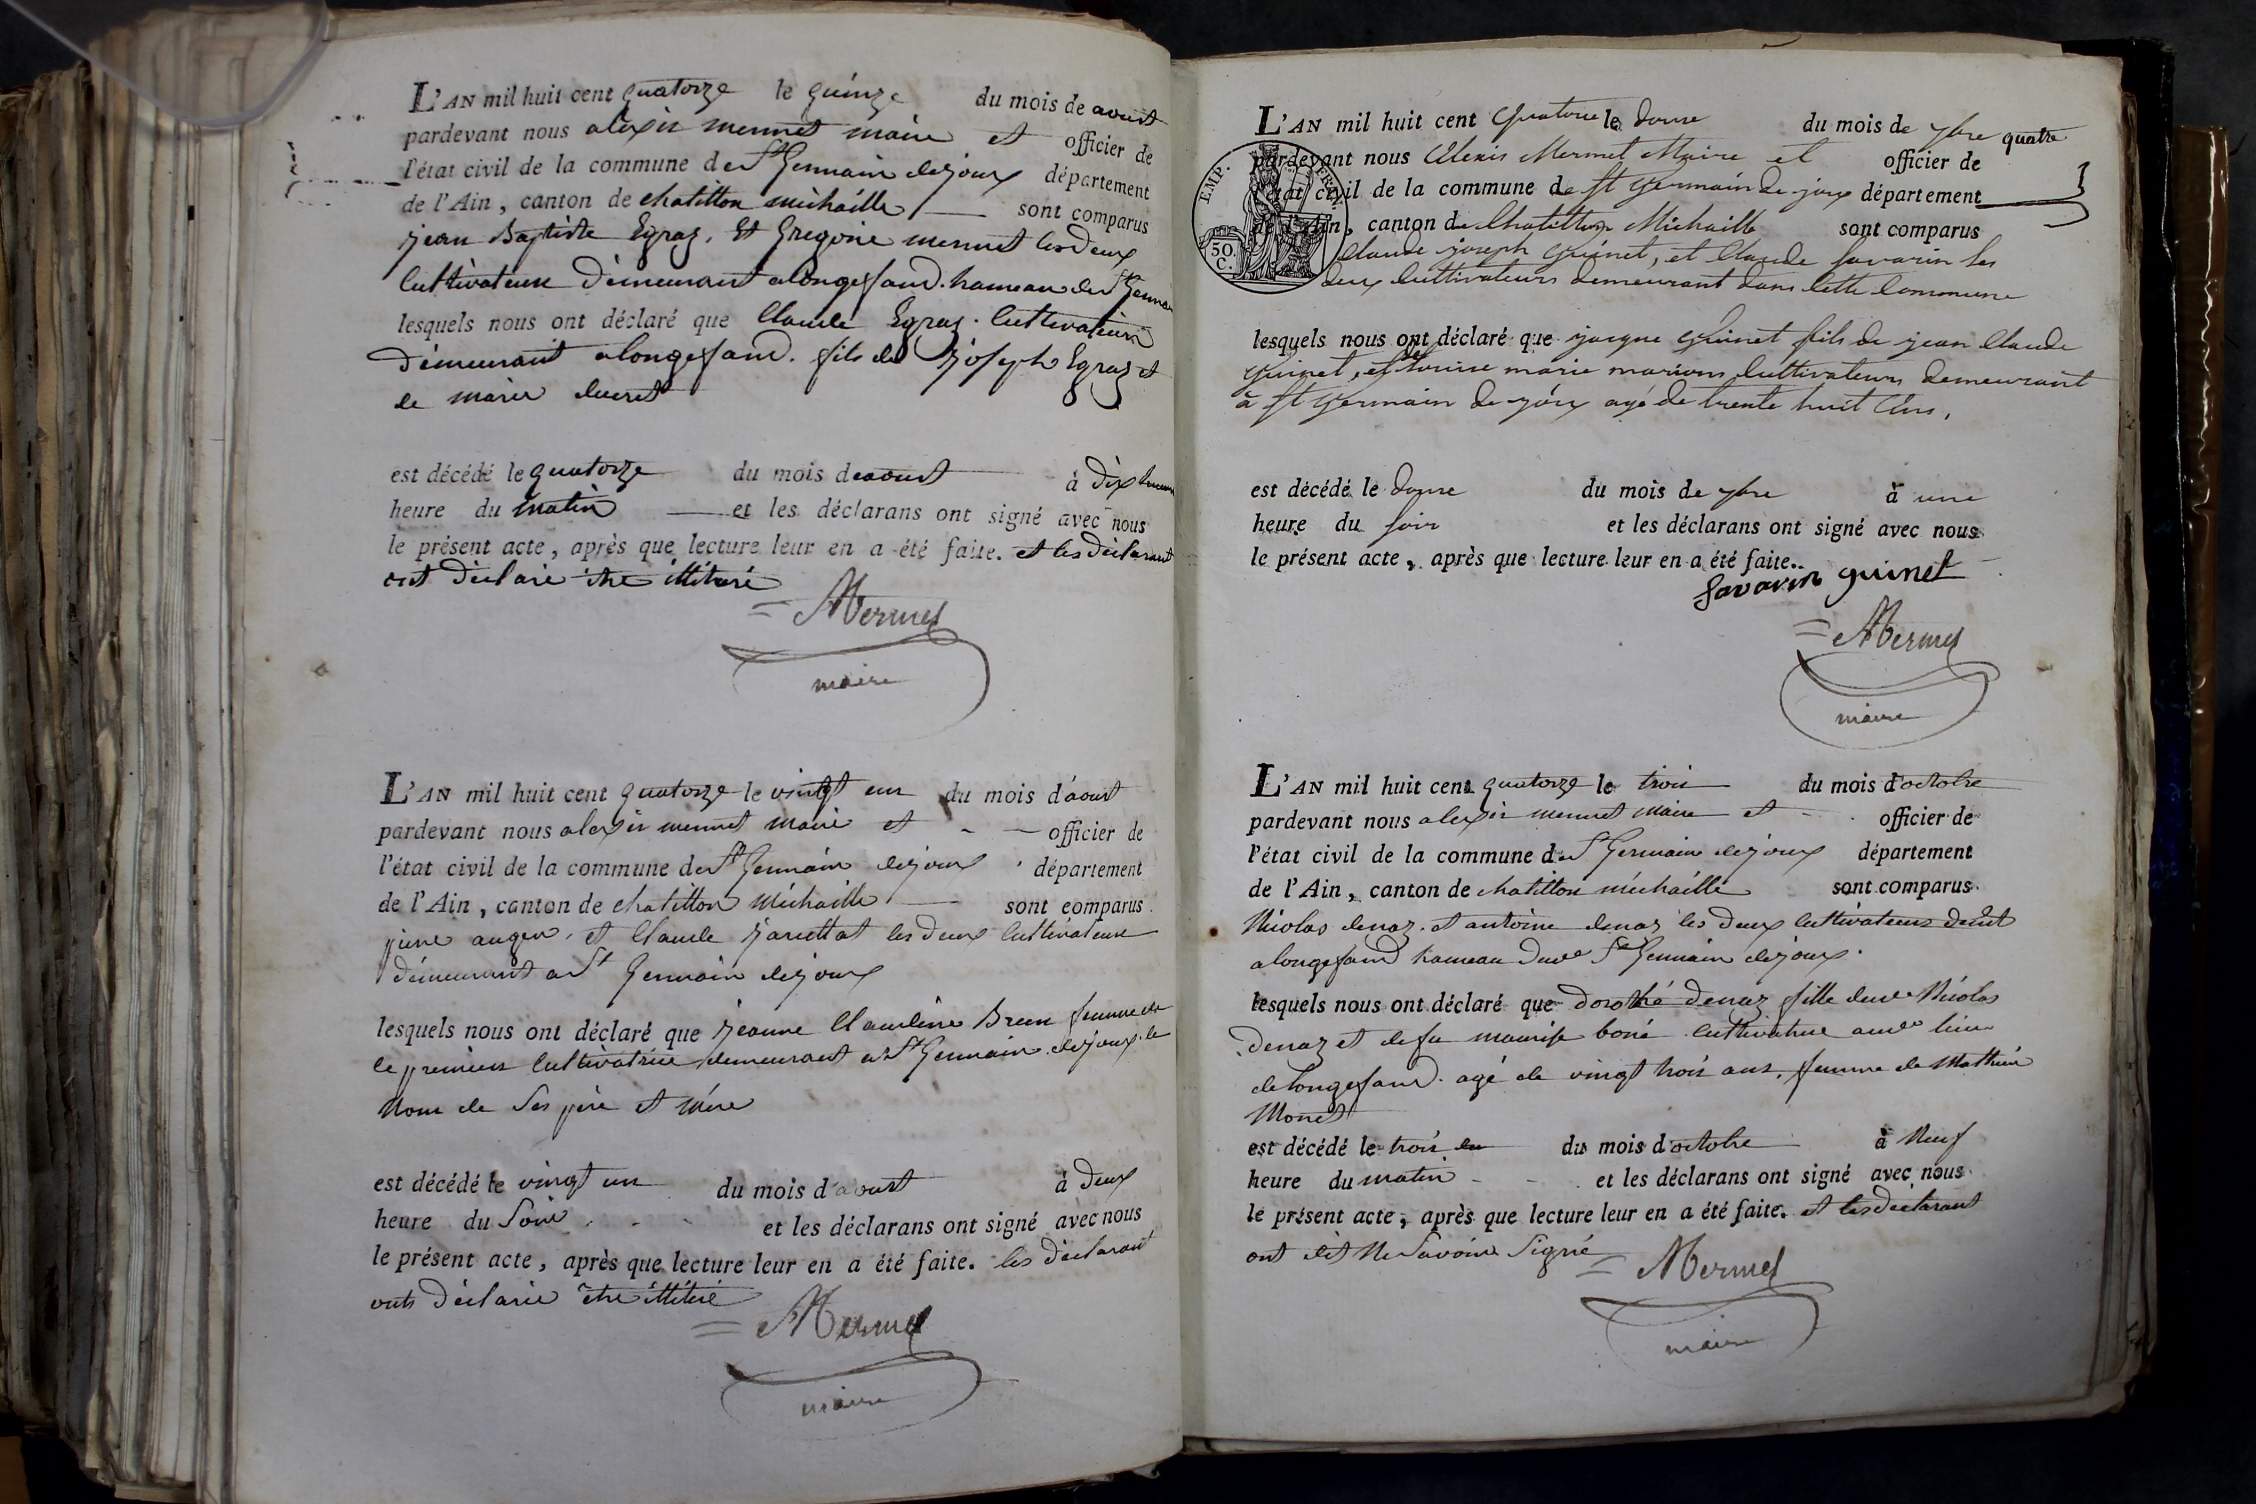 L'AN mil huit cent quatorze le quinze du mois de aoust
pardevant nous alexis mermet maire et officier de
l'état civil de la commune de St Germain dejoux département
de l'Ain, canton de chatillon michaille sont comparus
jean Baptiste Egraz, Et Gregoire mermet les deux
Cultivateur demeurant a longefand. hameau de St Germain
lesquels nous ont déclaré que Claude Egraz. Cultivateur
demeurant a longefand. fils de joseph Egraz et
de marie ducret
est décédé le quatorze du mois de aoust à dix heure
heure du matin et les déclarans ont signé avec nous
le présent acte, après que lecture leur en a été faite. et les déclarant
ont déclaré être illitéré
AMermet
maire
L'AN mil huit cent quatorze le vingt un du mois d'aoust
pardevant nous alexis mermet maire et officier de
l'état civil de la commune de St Germain dejoux département
de l'Ain, canton de chatillon michaille sont comparus
augen, et Claude les deux Cultivateur
demeurant a St Germain dejoux
lesquels nous ont déclaré que jeanne Claudine Brun femme de
le premier Cultivatrice demeurant a St Germain dejoux. le
Nom de Ses père et mère
est décédé le vingt un du mois d'aoust à deux
heure du Soir et les déclarans ont signé avec nous
le présent acte, après que lecture leur en a été faite. les déclarant
onts déclaré être illitéré
AMermet
maire
L'AN mil huit cent Quatorze le douze du mois de 7bre quatre
pardevant nous Alexis Mermet Maire et officier de
l'état civil de la commune de St Germain de joux département
de l'Ain, canton de Chatillon Michaille sont comparus
EMP. FRAN.
50 C.
Claude joseph Guinet, et Claude Savarin les
deux Cultivateurs demeurant dans Cette Commune
lesquels nous ont déclaré que jacque Guinet fils de jean Claude
Guinet, et de Louise marie marions Cultivateurs demeurant
à St Germain de joux agé de trente huit Ans,
est décédé le douze du mois de 7bre à une
heure du soir et les déclarans ont signé avec nous
le présent acte, après que lecture leur en a été faite.
Savarin guinet
AMermet
maire
L'AN mil huit cent quatorze le trois du mois d'octobre
pardevant nous alexis mermet maire et officier de
l'état civil de la commune de St Germain dejoux département
de l'Ain, canton de chatillon michaille sont comparus
Nicolas denaz. et antoine denaz les deux Cultivateurs demt
a longefand hameau dude St Germain dejoux.
lesquels nous ont déclaré que dorothé Denaz fille dude Nicolas
Denaz et de fu maurise boné Cultivatrice aude lieu
de longefand. agé de vingt trois ans. femme de Mathieu
Monet
est décédé le trois du du mois d'octobre à Neuf
heure du matin et les déclarans ont signé avec nous
le présent acte, après que lecture leur en a été faite. et les déclarant
ont dit Ne Savoir Signé
AMermet
maire